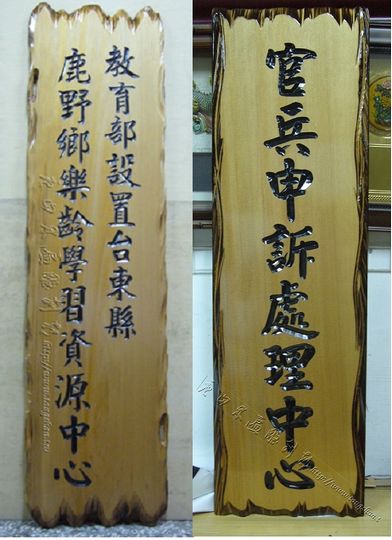 教育部設置台東縣
鹿野鄉樂齡學習資源中心
官兵申訴處理中心